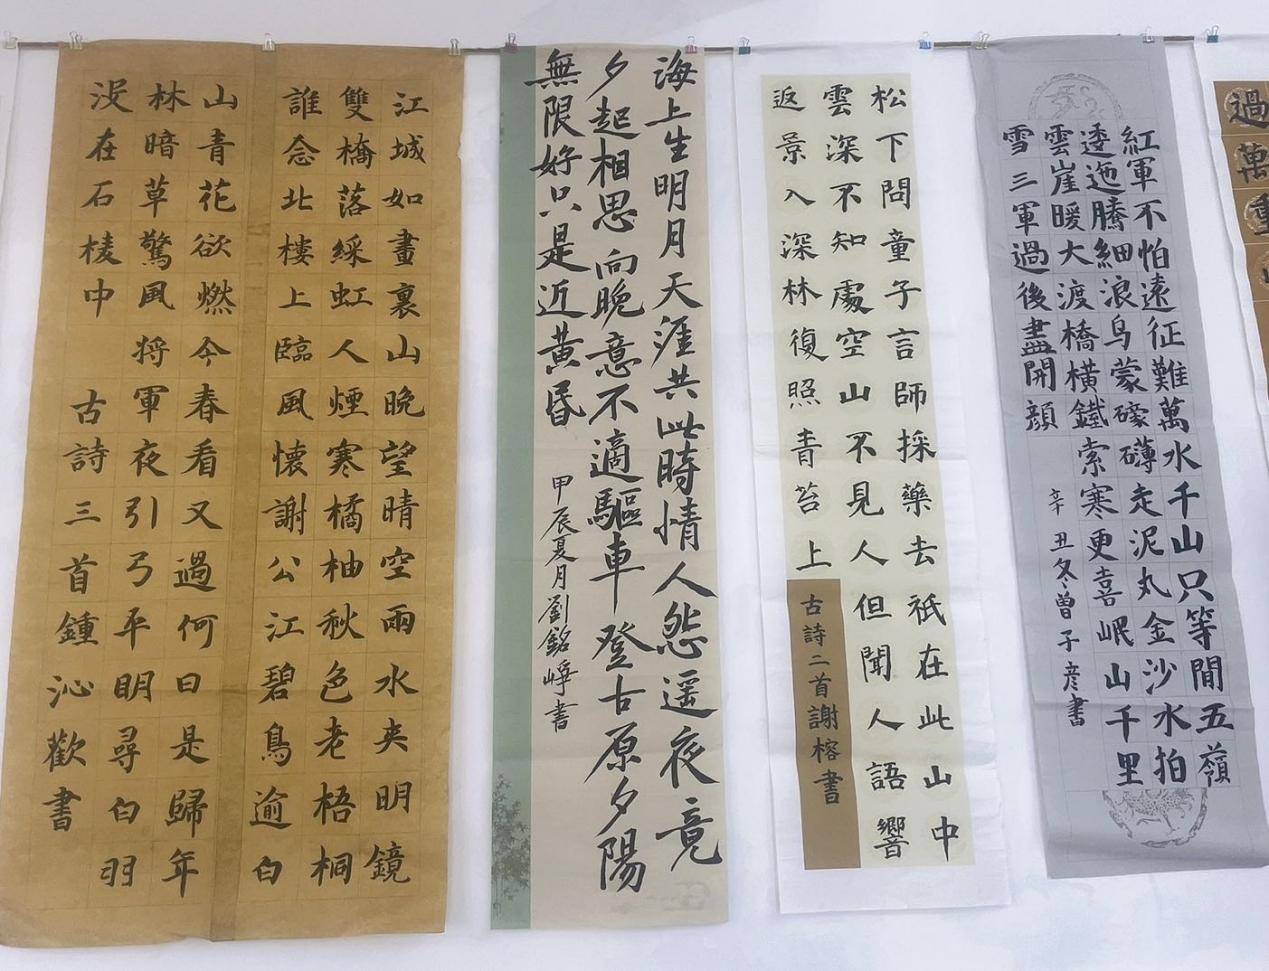 過萬重
紅軍不怕遠征難萬水千山只等閒五嶺
逶迤騰細浪烏蒙磅礴走泥丸金沙水拍
雲崖暖大渡橋橫鐵索寒更喜岷山千里
雪三軍過後盡開顔
辛丑冬曾子彦書
松下問童子言師採藥去祇在此山中
雲深不知處空山不見人但聞人語響
返景入深林復照青苔上
古詩二首謝榕書
海上生明月天涯共此時情人怨遥夜竟
夕起相思向晚意不適驅車登古原夕陽
無限好只是近黄昏
甲辰夏月劉銘崢書
江城如畫裏山晚望晴空雨水夾明鏡
雙橋落綵虹人煙寒橘柚秋色老梧桐
誰念北樓上臨風懷謝公江碧鳥逾白
山青花欲燃今春看又過何日是歸年
林暗草驚風将軍夜引弓平明尋白羽
没在石棱中 古詩三首鍾沁歡書